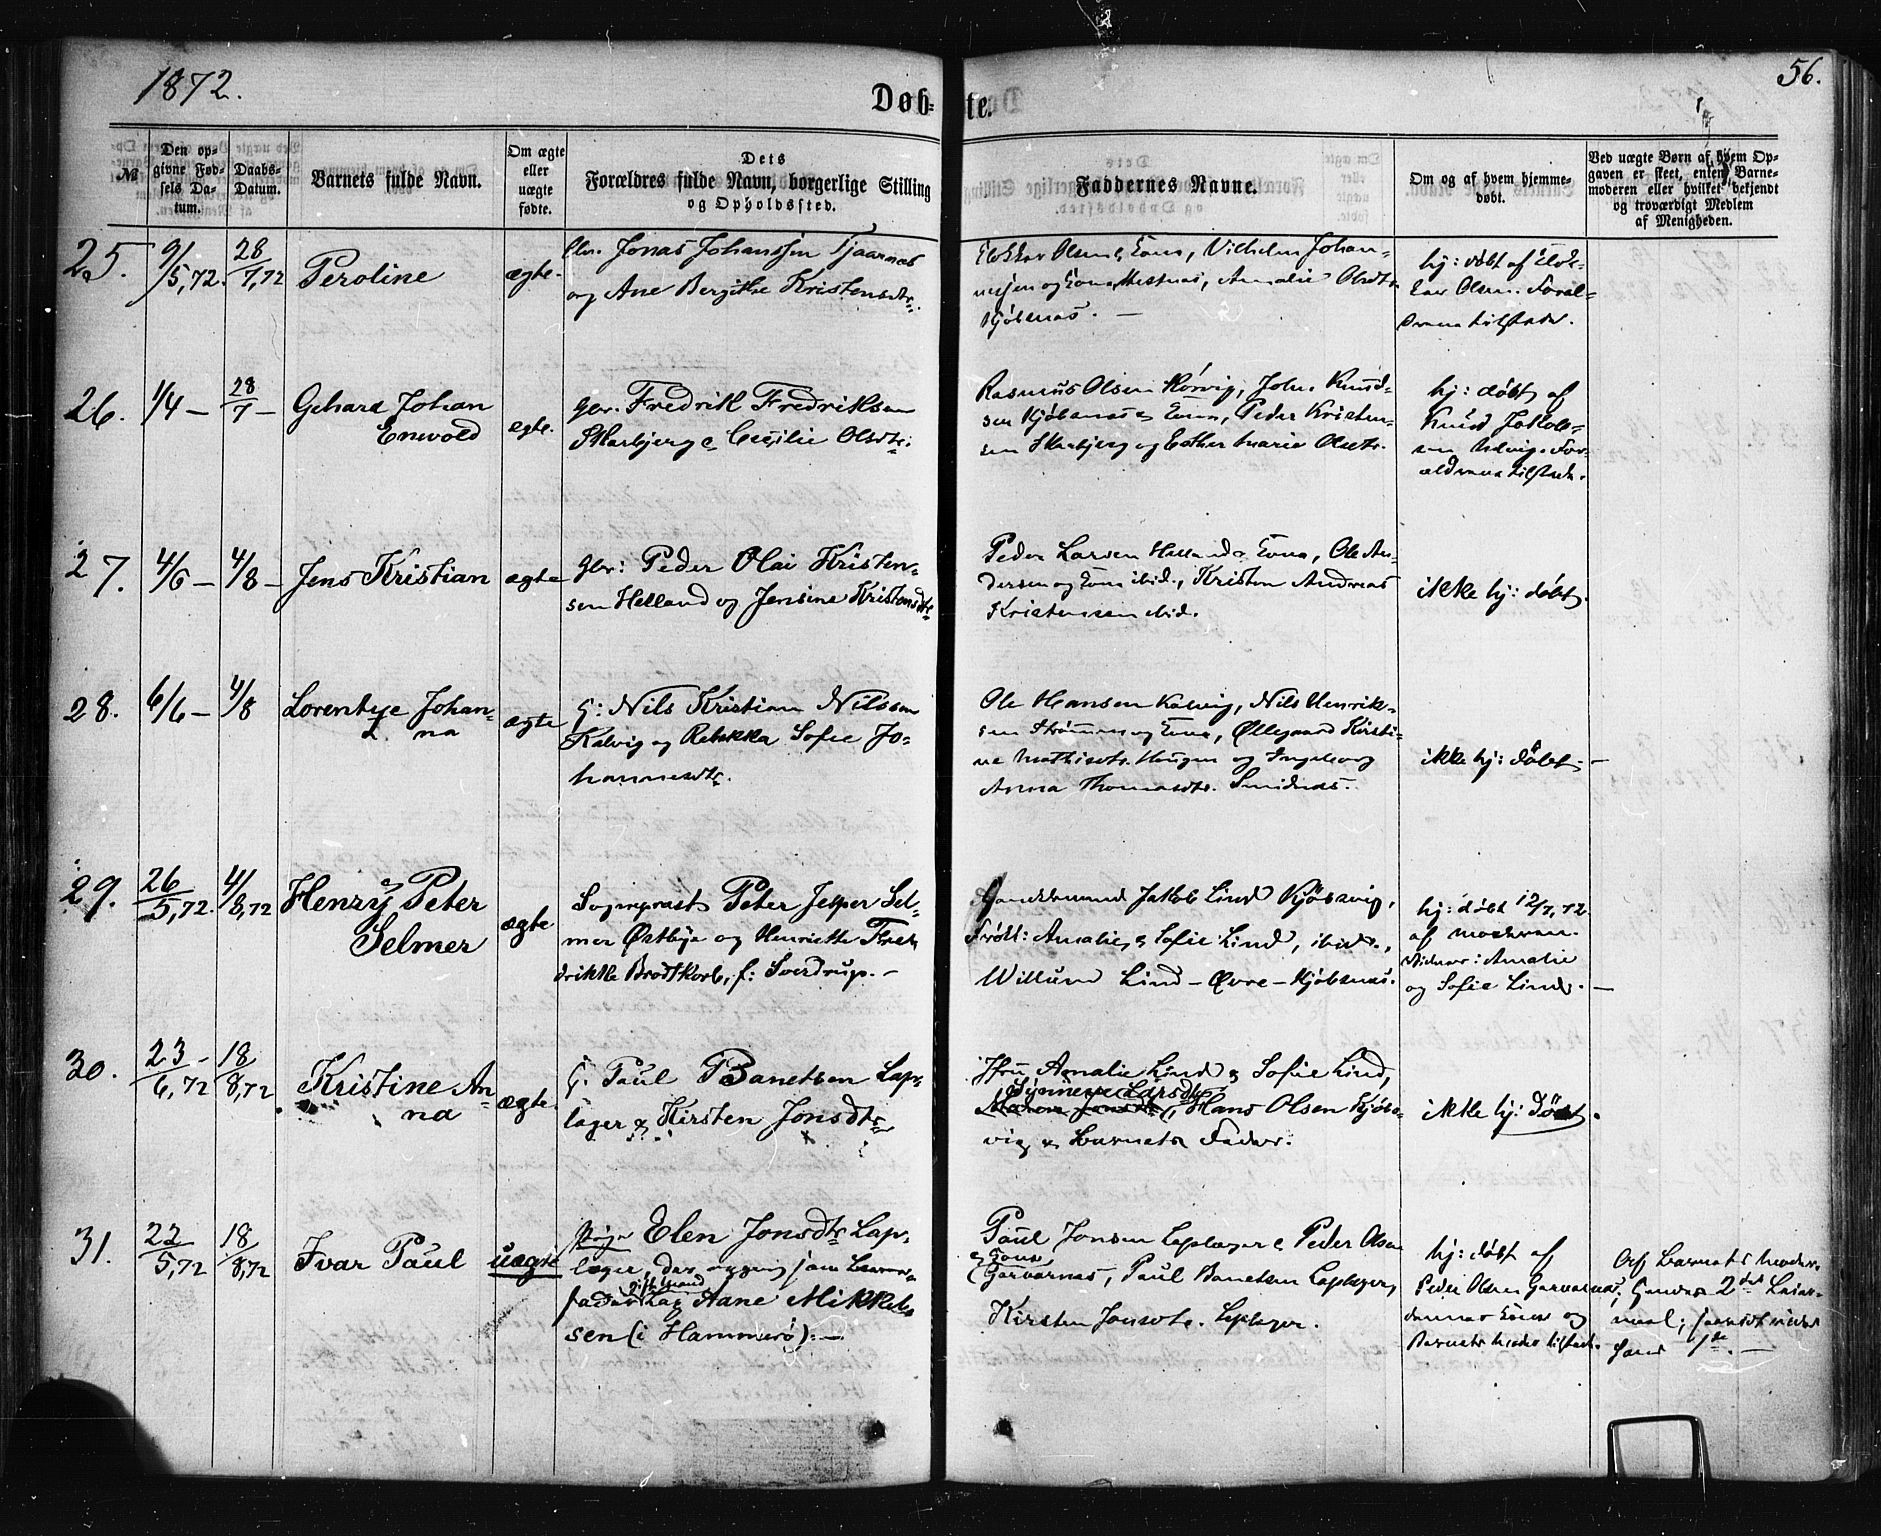 1872.
56.
Døb-
te.
№
Den op-
givne Fød-
sels Da-
tum.
Daabs-
Datum.
Barnets fulde Navn.
Om ægte
eller
uægte
fødte.
Dets
Forældres fulde Navn, borgerlige Stilling
og Opholdssted.
Faddernes Navne.
Om og af hvem hjemme-
døbt.
Ved uægte Børn af hvem Op-
gaven er skeet, enten Barne-
moderen eller hvilket bekjendt
og troværdigt Medlem
af Menigheden.
25.
9/5,72.
28/7,72
Peroline
ægte.
Jonas Johanssen Tjaarnæs
og Ane Bergithe Kristensdtr.
Olsen & Kone, Vilhelm Johan-
nesen og Kone Mestnæs, Amalie Olsdtr
Kjöbsnæs. —
hj: döbt af
Olsen. Foræl-
drene tilstede.
26.
1/4 —
28/7 —
Gehard Johan
Enevold
egte.
Gbr. Fredrik Fredriksen
Skarbjerg & Cecilie Olsdtr:
Rasmus Olsen Rörvig, Joh. Knud-
sen Kjöbsnæs & Kone, Peder Kristen-
sen Skarbjerg og Esther Marie Olsdtr.
hj: döbt af
Knud Jakob-
sen . For-
ældrene tilstede.
27.
4/6 —
4/8 —
Jens Kristian
ægte
Gbr: Peder Olai Kristen-
sen Helland og Jensine Kristensdtr
Peder Larsen Helland & Kone, Ole An-
dersen og Kone ibid., Kristen Andreas
Kristensen ibid.
ikke hj: döbt.
28.
6/6 —
4/8
Lorentze Johan-
na
ægte
G: Nils Kristian Nilssen
Kalvig og Rebekka Sofie Jo-
hannesdtr.
Ole Hansen Kalvig, Nils Henrik-
sen Strømmen og Kone, Øllegaard Kirsti-
ne Mathisdtr. Haugen og Ingeborg
Anna Thomasdtr. Smidnæs.
ikke hj: döbt. —
29.
26/5,72.
4/8,72
Henry Peter
Selmer
ægte
Sogneprest Peter Jesper Sel-
mer Østbye og Henriette Fre-
drikke Brodtkorb, f: Sverdrup. —
Handelsmand Jakob Lind Kjöbsvig,
Frökn: Amalie & Sofie Lind, ibid.,
Willum Lind — Øvre — Kjöbsnæs.
hj: döbt 12/7,72.
af Moderen.
Vidner: Amalie
og Sofie Lind. —
30.
23/6,72
18/8,72
Kristine An-
na
ægte.
G: Paul Banetsen Lap-
læger & Kirsten Jonsdtr
Jfru Amalie Lind & Sofie Lind,
Synneve Larsdtr
Hans Olsen Kjöbs-
vig & Barnets Fader.
ikke hj: döbt.
31.
22/5,72
18/8,72
Ivar Paul
uægte
Pige Elen Jonsdtr. Lap-
læger, der opgiver som Barne-
fader Lap Aane Mikkel-
sen (i Hammerö). —
Paul Jonsen Laplæger & Peder Olsen
& Kone
Garvarnæs, Paul Banetsen Laplæger,
Kirsten Jonsdtr. Laplæger.
hj: döbt af
Peder Olsen Garvarnæs,
dennes Kone og
Barnets Moder tilstede.
Af Barnets Moder.
hendes 2det Leier-
maal;
1ste. —